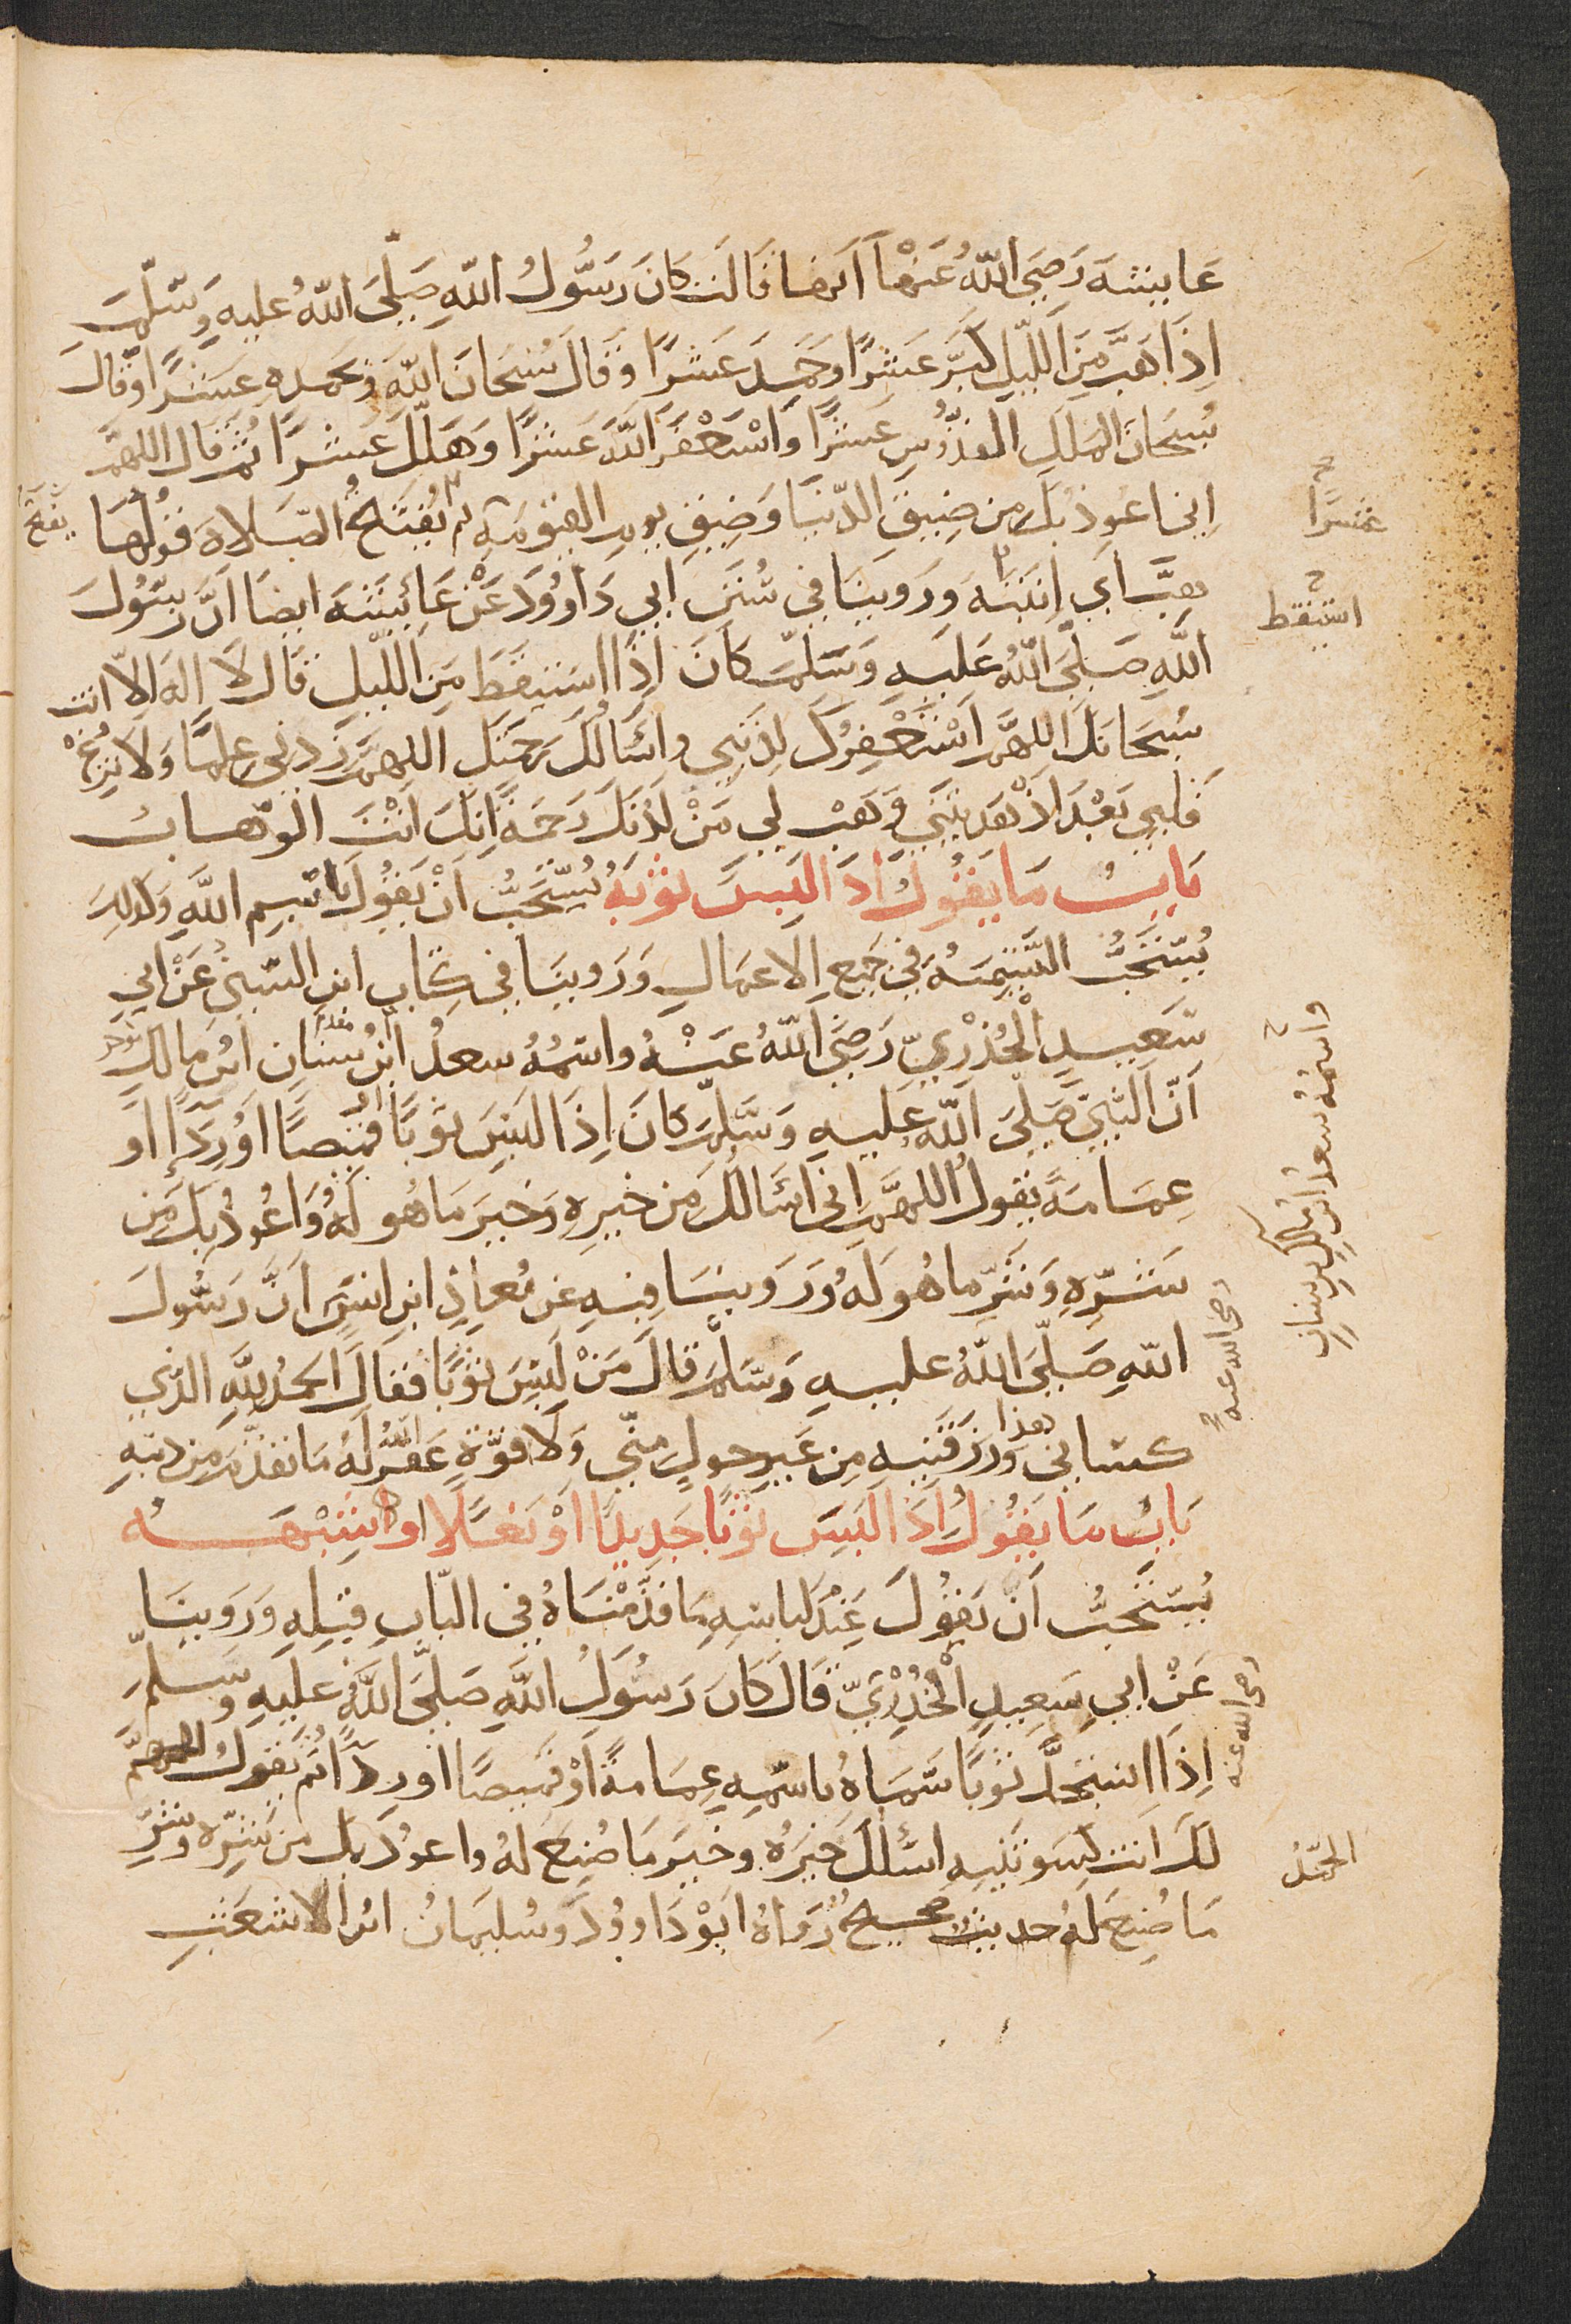 عايشةَ رَضِيَ اللّهُ عَنْهَا انها قالت كانَ رَسُولُ اللّهِ صَلَّى اللّهُ عليهِ وَسَلَّمَ
اِذَا هَبَّ مِنَ اللَّيلِ كَبَّرَ عَشرًا وحَمِدَ عَشرًا وَقالَ سُبحَانَ اللّهِ وبحمدِهِ عَشرًا وقالَ
سُبحَانَ الملكِ القدُّوسِ عَشرًا وَاسْتَغْفَرَ اللّهَ عَشرًا وَهَلَّلَ عَشرًا ثُمَّ قال اللهمَّ
عشرًا
اِني اعوذ بكَ من ضِيقِ الدّنيَا وَضِيقِ يومِ القيٰمةِ ثم يُفتَتحُ الصَّلاةَ قَوْلُهَا
يفتتح
هبَّ اي انتبَهَ وَرَوَينَا في سُنَنِ ابي دَاوُودَ عَنْ عَائِشَةَ ايضا اَنَّ رسُولَ
استيقظ
اللَّهِ صَلَّى اللّهُ عَلَيهِ وَسَلَّمَ كَانَ اذَا اِستيقظَ مِنَ اللّيلِ قَال لَا اِلهَ اِلاّ انت
سُبحانكَ اللهمَّ اَسْتَغْفِرُكَ لِذَنبي واَسْالُكَ رَحمَتَكَ اللهمَّ زِدني علمًا وَلا تُزِغْ
قَلبي بَعْدَ اذْ هَديتَني وَهَبْ لي مِنْ لدُنكَ رَحمَةً انكَ انْتَ الوهّابُ
بَابُ مَا يَقُولُ اذا لَبِسَ ثوبَهُ يُستحَبُّ اَنْ يَقُولَ باسمِ اللَّهِ وَكذلِكَ
يُستَحَبُّ التَّسْمِيَةُ في جَميعِ الاعمالِ وَرَوينَا في كِتَابِ ابنِ السّنيِّ عَنْ ابي
سَعِيدٍ الْخُدْرِيِّ رَضِيَ اللّهُ عَنْهُ واسمُهُ سعدُ ابنُ سنَانِ ابنِ مالكٍ
واسمُهُ سعدُ ابنِ مالكِ بنِ سنانٍ
اَنَّ النّبيَّ صَلَّى اللّه عليهِ وَسَلَّمَ كانَ اِذَا لَبِسَ ثوبًا قميصًا اَوْ رِدَآءً او
عِمَامَةً يقولُ اللهمَّ اِني اسْالُكَ مِن خَيرِهِ وَخَيرَ مَا هُو لَهُ وَاعُوذُ بكَ مِن
شَرِّهِ وَشَرِّ ما هُو لَهُ وَرَوينَا فيهِ عَن مُعاذِ ابنِ انَسٍ اَنَّ رَسُولَ
رضي الله عنه
اللّهِ صَلَّى اللّهُ عليهِ وَسَلَّمَ قالَ مَنْ لَبِسَ ثوبًا فَقالَ الحَمدُ لِلَّهِ الذي
كسَاني هذا وَرَزَقَنيهِ مِن غَيرِ حولٍ منّي وَلا قوَّةٍ غَفَرَ اللّهُ لَهُ مَا تقدَّمَ مِن ذنبِهِ
بَابُ مَا يَقُولُ اذا لَبِسَ ثوبًا جَدِيدًا اَوْ نَعْلًا او شِبْهَهُ
يُستَحَبُّ اَنْ يَقُولَ عِنْدَ لِبَاسِهِ مَا قَدَّمْنَاهُ في البَابِ قبلِهِ وَرَوينَا
عَنْ ابي سَعِيدٍ الْخُدْرِيِّ قَالَ كَانَ رَسُولُ اللَّهِ صَلَّى اللّهُ عليهِ وسَلَّمَ
رضي الله عنه
اِذَا استَجَدَّ ثوبًا سَمَّاهُ باسمِهِ عِمَامةً اَوْ قميصًا اَو ردآءً ثم يَقولُ اللهمَّ
لكَ انت كسَوتَنيهِ اسْئلكَ خَيرَهُ وخَيرَ مَا صُنِعَ لهُ واعوذ بكَ من شَرِّهِ وشَرِّ
الحمدُ
مَا صُنِعَ لهُ حديث صحيحٌ رَوَاهُ ابو دَاوُودَ وسُليمَانُ ابن الاشعَثِ